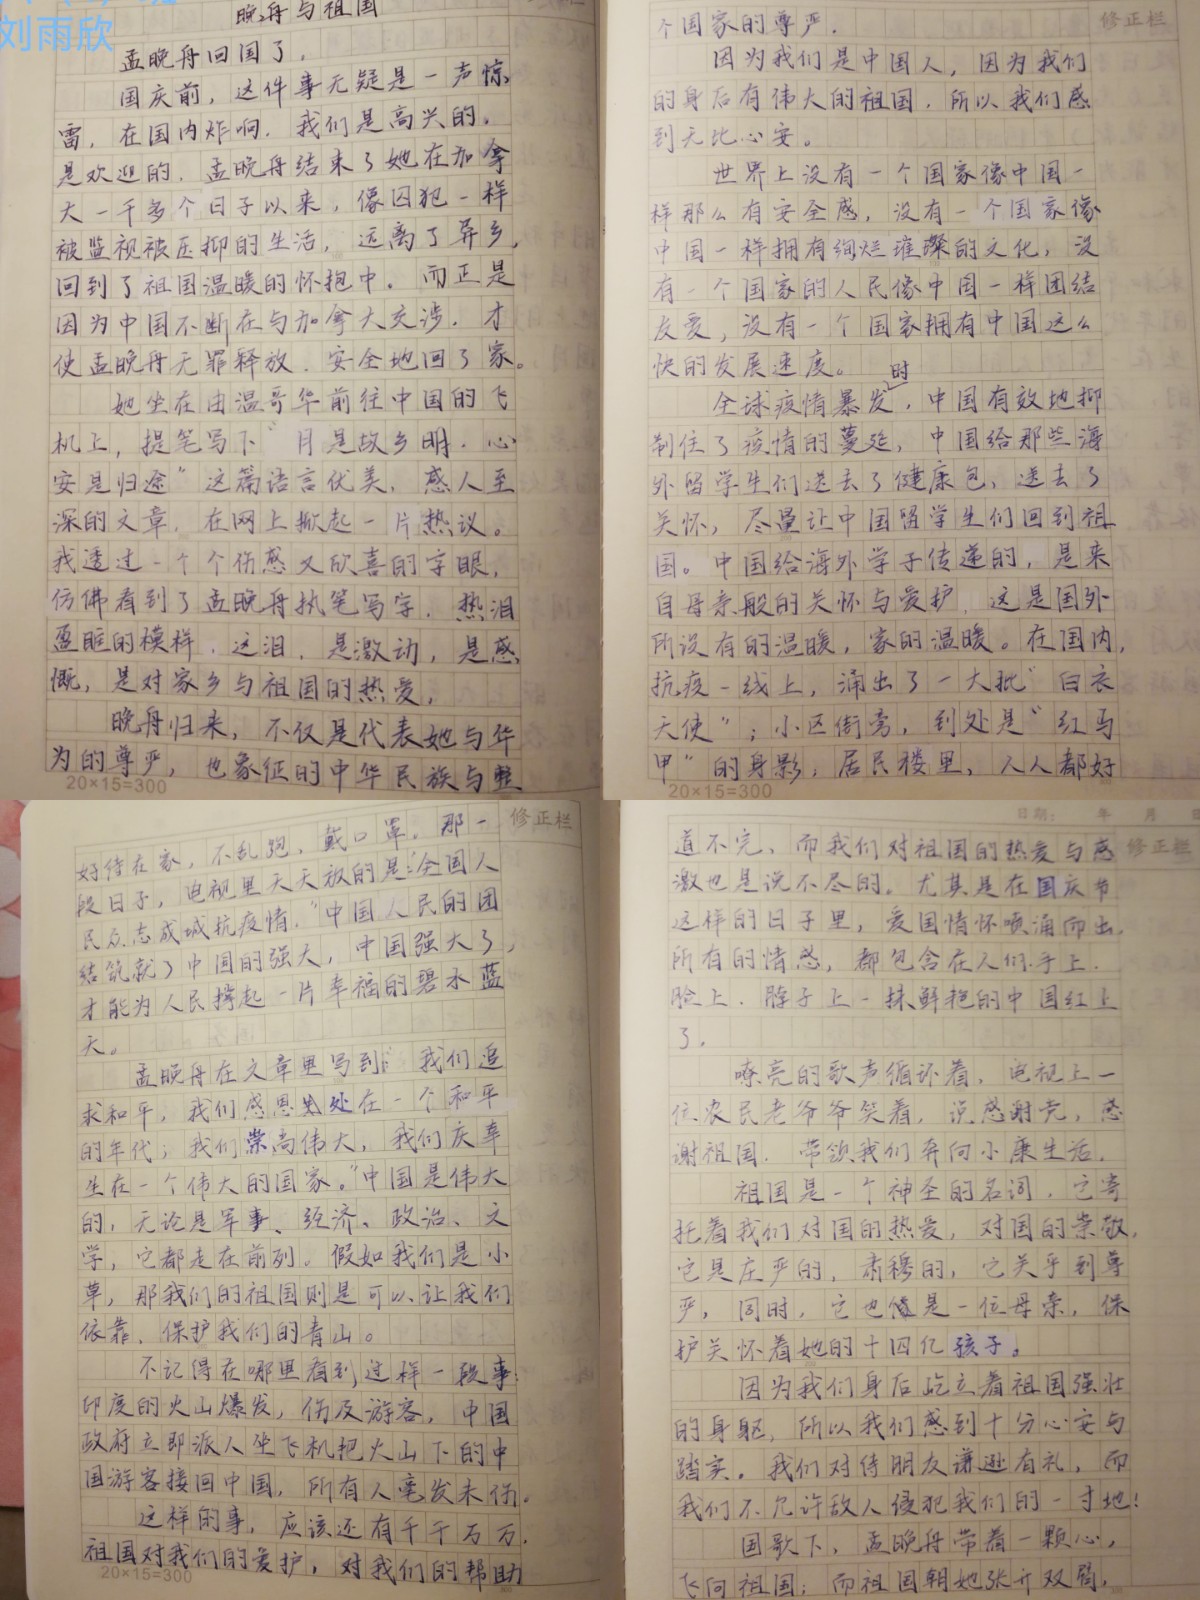 刘雨欣
晚舟与祖国
孟晚舟回国了。
国庆前，这件事无疑是一声惊
雷，在国内炸响。我们是高兴的，
是欢迎的。孟晚舟结束了她在加拿
大一千多个日子以来，像囚犯一样
被监视被压抑的生活，远离了异乡，
回到了祖国温暖的怀抱中。而正是
因为中国不断在与加拿大交涉，才
使孟晚舟无罪释放、安全地回了家。
她坐在由温哥华前往中国的飞
机上，提笔写下“月是故乡明，心
安是归途”这篇语言优美，感人至
深的文章，在网上掀起一片热议。
我透过一个个伤感又欣喜的字眼，
仿佛看到了孟晚舟执笔写字，热泪
盈眶的模样，这泪，是激动，是感
慨，是对家乡与祖国的热爱，
晚舟归来，不仅是代表她与华
为的尊严，也象征的中华民族与整
20×15=300
修正栏
个国家的尊严。
因为我们是中国人，因为我们
的身后有伟大的祖国，所以我们感
到无比心安。
世界上没有一个国家像中国一
样那么有安全感，没有一个国家像
中国一样拥有绚烂璀璨的文化，没
有一个国家的人民像中国一样团结
友爱，没有一个国家拥有中国这么
快的发展速度。
全球疫情暴发时，中国有效地抑
制住了疫情的蔓延，中国给那些海
外留学生们送去了健康包，送去了
关怀，尽量让中国留学生们回到祖
国。中国给海外学子传递的，是来
自母亲般的关怀与爱护，这是国外
所没有的温暖，家的温暖。在国内，
抗疫一线上，涌出了一大批“白衣
天使”；小区街旁，到处是“红马
甲”的身影；居民楼里，人人都好
20×15=300
修正栏
好待在家，不乱跑，戴口罩。那一
段日子，电视里天天放的是：“全国人
民众志成城抗疫情，”中国人民的团
结筑就了中国的强大，中国强大了，
才能为人民撑起一片幸福的碧水蓝
天。
孟晚舟在文章里写到：“我们追
求和平，我们感恩处在一个和平
的年代；我们崇高伟大，我们庆幸
生在一个伟大的国家。”中国是伟大
的，无论是军事、经济、政治、文
学，它都走在前列。假如我们是小
草，那我们的祖国则是可以让我们
依靠、保护我们的青山。
不记得在哪里看到过样一段事：
印度的火山爆发，伤及游客，中国
政府立即派人坐飞机把火山下的中
国游客接回中国，所有人毫发未伤。
这样的事，应该还有千千万万，
祖国对我们的爱护，对我们的帮助
20×15=300
日期： 年 月 日
修正栏
道不完，而我们对祖国的热爱与感
激也是说不尽的。尤其是在国庆节
这样的日子里，爱国情怀喷涌而出，
所有的情感，都包含在人们手上、
脸上、脖子上一抹鲜艳的中国红上
了。
嘹亮的歌声循环着，电视上一
位农民老爷爷笑着，说感谢党，感
谢祖国，带领我们奔向小康生活。
祖国是一个神圣的名词，它寄
托着我们对国的热爱，对国的崇敬，
它是庄严的，肃穆的，它关乎到尊
严，同时，它也像是一位母亲，保
护关怀着她的十四亿孩子。
因为我们身后屹立着祖国强壮
的身躯，所以我们感到十分心安与
踏实。我们对待朋友谦逊有礼，而
我们不允许敌人侵犯我们的一寸地！
国歌下，孟晚舟带着一颗心，
飞向祖国；而祖国朝她张开双臂，